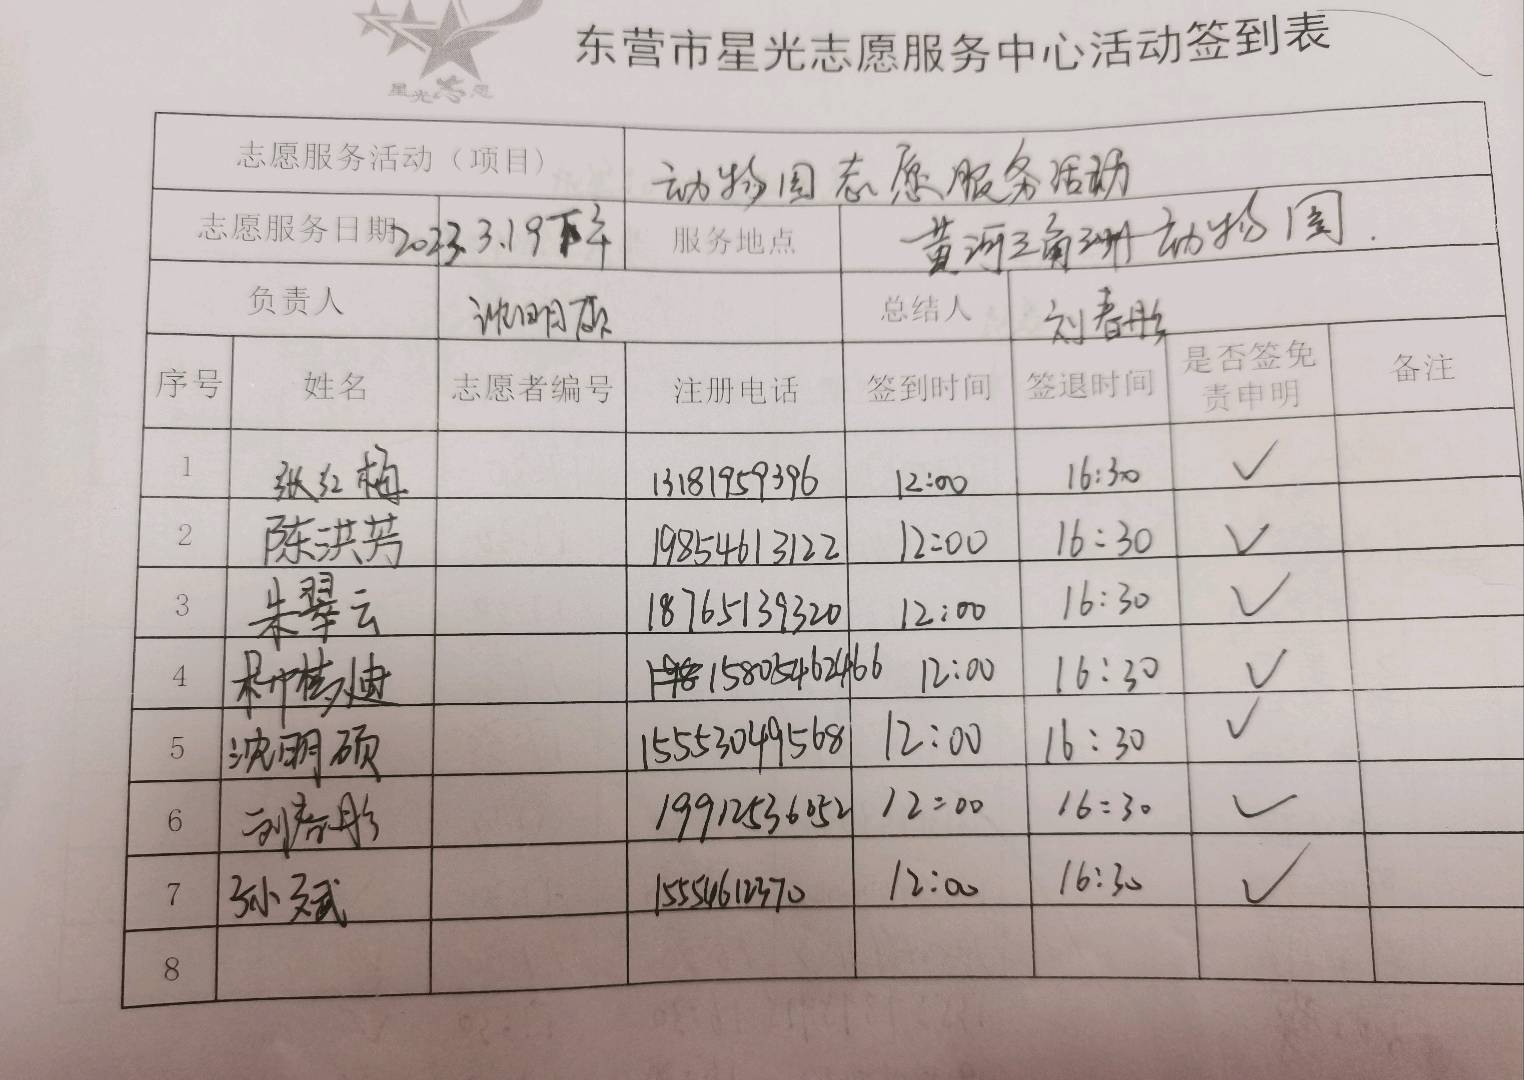 星光志愿
东营市星光志愿服务中心活动签到表
志愿服务活动（项目） 动物园志愿服务活动
志愿服务日期 2023.3.19下午 服务地点 黄河三角洲动物园
负责人 沈明硕 总结人 刘春彤
序号 姓名 志愿者编号 注册电话 签到时间 签退时间 是否签免责申明 备注
1 张红梅 13181959396 12:00 16:30 ✓
2 陈洪芳 19854613122 12:00 16:30 ✓
3 朱翠云 18765139320 12:00 16:30 ✓
4 15805462466 12:00 16:30 ✓
5 沈明硕 15553049568 12:00 16:30 ✓
6 刘春彤 19912536052 12:00 16:30 ✓
7 孙文斌 15554612370 12:00 16:30 ✓
8